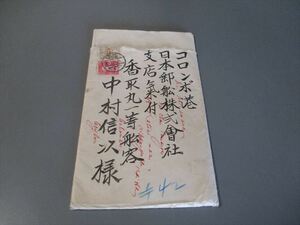 コロンボ港
日本郵船株式會社
支店気付
香取丸一等船客
中村信次様
#42